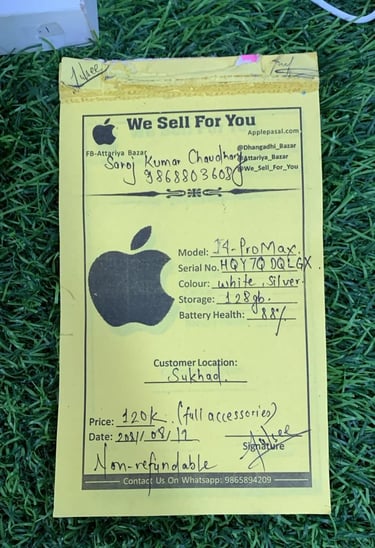 We Sell For You
Applepasal.com
FB-Attariya Bazar
@Dhangadhi_Bazar
@Attariya_Bazar
@We_Sell_For_You
Saroj Kumar Chaudhary
9868803608
Model: 14-ProMax
Serial No. HQY7QDQLGX
Colour: white, Silver
Storage: 128gb.
Battery Health: 88%
Customer Location:
Sukhad.
Price: 120k (full accessories)
Date: 2081/08/17
Signature
Non-refundable
Contact Us On Whatsapp: 9865894209